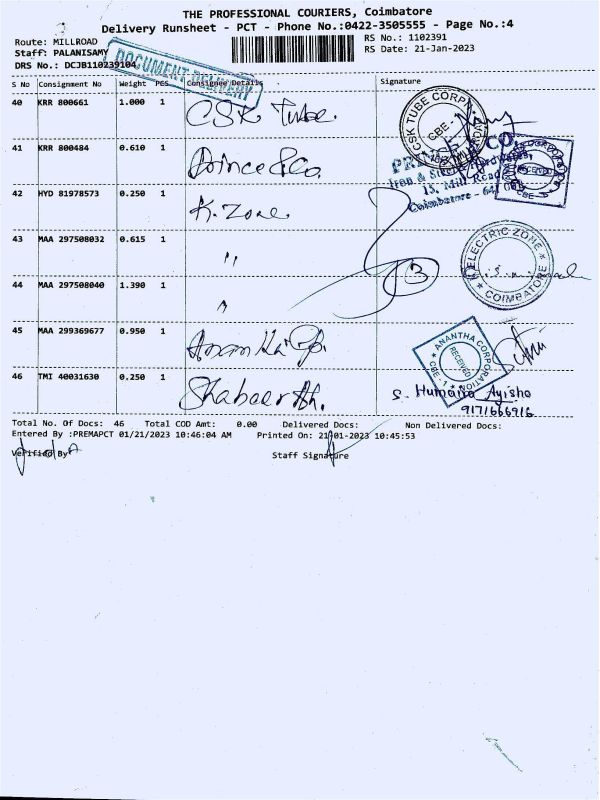 THE PROFESSIONAL COURIERS, Coimbatore
Delivery Runsheet - PCT - Phone No.:0422-3505555 - Page No.:4
Route: MILLROAD
RS No.: 1102391
Staff: PALANISAMY
RS Date: 21-Jan-2023
DRS No.: DCJB110239104
DOCUMENT DELIVERY
S No Consignment No Weight PCS Consignee Details Signature
40 KRR 800661 1.000 1 CSK Tube.
CSK TUBE CORPN
CBE
41 KRR 800484 0.610 1 Prince & Co.
CO.
Iron &
15, Mill Road
Coimbatore - 64
RECEIVED
CBE
42 HYD 81978573 0.250 1 K. Zone
43 MAA 297508032 0.615 1 "
ELECTRIC ZONE
COIMBATORE
3
44 MAA 297508040 1.390 1 "
45 MAA 299369677 0.950 1
ANANTHA CORPORATION
RECEIVED
CBE - 1
46 TMI 40031630 0.250 1 Shabeer Ah.
S. Humaira Ayisha
9171666916
Total No. Of Docs: 46 Total COD Amt: 0.00 Delivered Docs: Non Delivered Docs:
Entered By :PREMAPCT 01/21/2023 10:46:04 AM Printed On: 21-01-2023 10:45:53
Verified By
Staff Signature